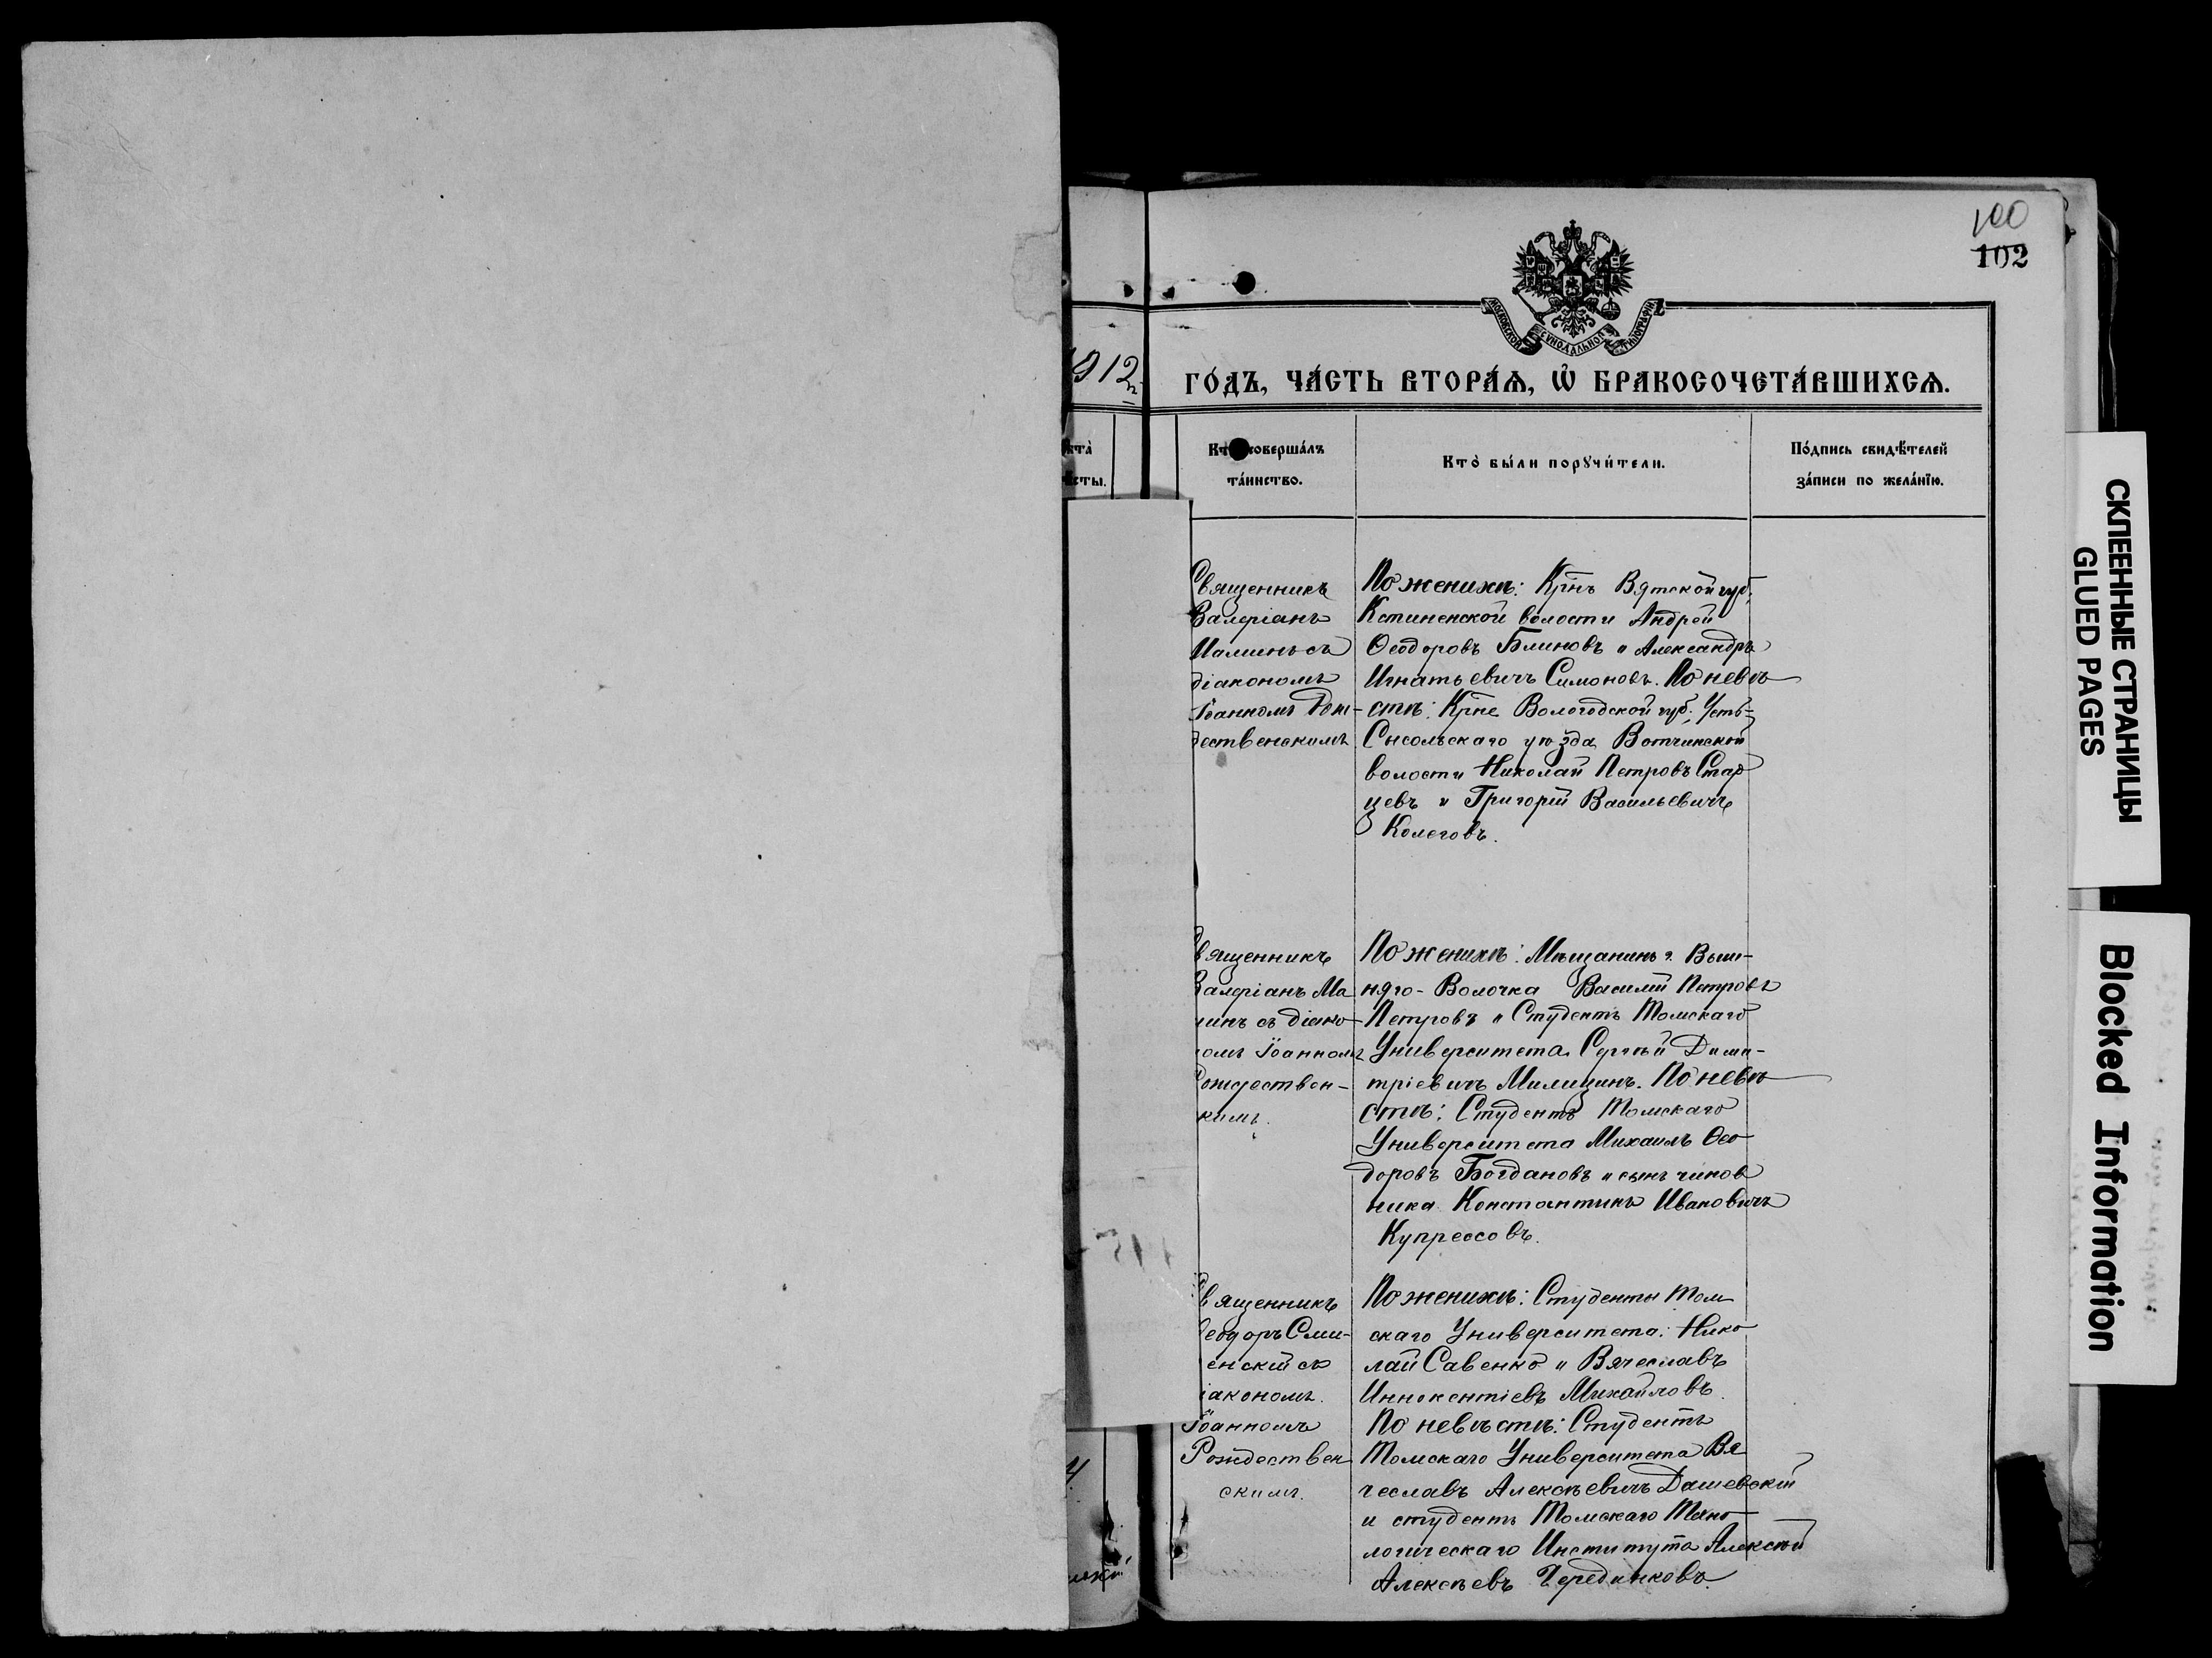 100
102
МОСКОВСКОЙ СѴНОДАЛЬНОЙ ТИПОГРАФІИ
1912
го́дъ, ча́сть втора́ѧ, ѡ҆ бракосочета́вшихсѧ.
Кто̀ соверша́лъ
та́инство.
Кто̀ бы́ли порꙋчи́тели.
По́дпись свидѣ́телей
за́писи по жела́нїю.
Священникъ
Валеріанъ
Маминъ съ
діакономъ
Іоанномъ Рож-
дественскимъ
По женихѣ: Кр̃нъ Вятской губ.
Кстиненской волости Андрей
Ѳеодоровъ Блиновъ и Александръ
Игнатьевичъ Симоновъ. По невѣ-
стѣ: Кр̃не Вологодской губ. Усть-
Сысольскаго уѣзда Вотчинской
волости Николай Петровъ Стар
цевъ и Григорій Васильевичъ
Колеговъ.
Священникъ
Валеріанъ Ма
минъ съ діако-
номъ Іоанномъ
Рождествен-
скимъ.
По женихѣ: Мѣщанинъ г. Выш-
няго-Волочка Василій Петровъ
Петровъ и Студентъ Томскаго
Университета Сергѣй Дими-
тріевичъ Милицинъ. По невѣ-
стѣ: Студентъ Томскаго
Университета Михаилъ Ѳео-
доровъ Богдановъ и сынъ чинов
ника Константинъ Ивановичъ
Купрессовъ.
Священникъ
Ѳеодоръ Сми-
енскій съ
діакономъ
Іоанномъ
Рождествен
скимъ.
По женихѣ: Студенты Том
скаго Университета: Нико
лай Савенко и Вячеславъ
Иннокентіевъ Михайловъ.
По невѣстѣ: Студентъ
Томскаго Университета Вя
чеславъ Алексѣевичъ Дашевскій
и студентъ Томскаго Техно-
логическаго Института Алексѣй
Алексѣевъ Чередниковъ.
СКЛЕЕННЫЕ СТРАНИЦЫ
GLUED PAGES
Blocked Information